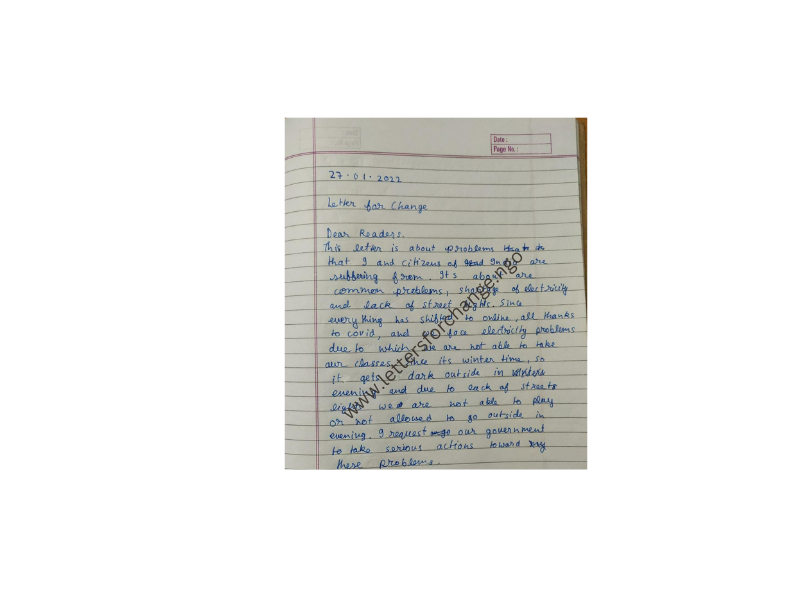 Date :
Page No. :
27.01.2022
Letter for Change
Dear Readers.
This letter is about problems
that I and citizens of India are
suffering from. Its about are
common problems, shortage of electricity
and lack of street lights. Since
everything has shifted to online, all thanks
to covid, and we face electricity problems
due to which we are not able to take
our classes. Since its winter time, so
it gets dark outside in winters
evening and due to lack of streets
lights we are not able to play
or not allowed to go outside in
evening. I request our government
to take serious actions toward
these problems.
www.lettersforchange.ngo